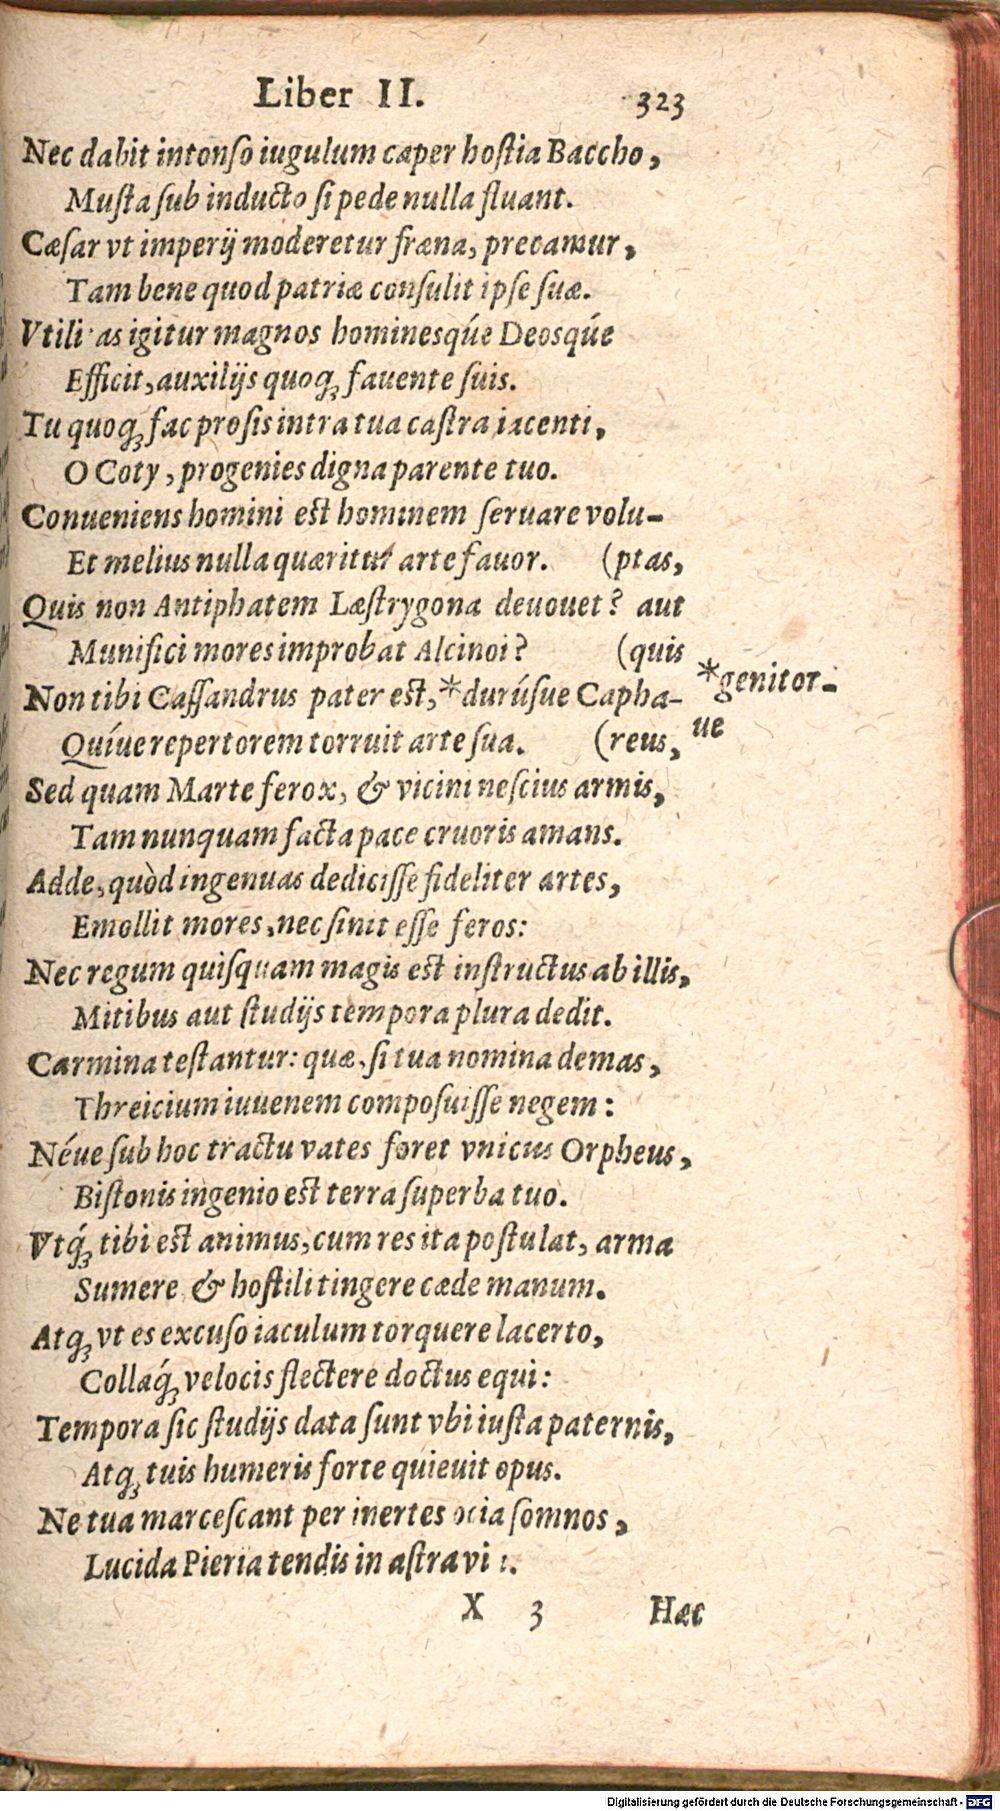 Liber II. 323
Nec dabit intonſo iugulum caper hoſtia Baccho,
Muſta ſub inducto ſi pede nulla fluant.
Cæſar vt imperij moderetur fræna, precamur,
Tam bene quod patriæ conſulit ipſe ſuæ.
Vtili as igitur magnos hominesq́ue Deosq́ue
Efficit, auxilijs quoqꝫ fauente ſuis.
Tu quoqꝫ fac proſis intra tua caſtra iacenti,
O Coty, progenies digna parente tuo.
Conueniens homini est hominem ſeruare volu-
Et melius nulla quæritur arte fauor. (ptas,
Quis non Antiphatem Læſtrygona deuouet? aut
Munifici mores improbat Alcinoi? (quis
Non tibi Caſſandrus pater est, *durúſue Capha-
*genitor-
Quíue repertorem torruit arte ſua. (reus,
ue
Sed quam Marte ferox, & vicini neſcius armis,
Tam nunquam facta pace cruoris amans.
Adde, quòd ingenuas dediciſſe fideliter artes,
Emollit mores, nec ſinit eſſe feros:
Nec regum quiſquam magis est inſtructus ab illis,
Mitibus aut ſtudijs tempora plura dedit.
Carmina teſtantur: quæ, ſi tua nomina demas,
Threicium iuuenem compoſuiſſe negem:
Néue ſub hoc tractu vates foret vnicus Orpheus,
Biſtonis ingenio est terra ſuperba tuo.
Vtq́ꝫ tibi est animus, cum res ita poſtulat, arma
Sumere & hoſtili tingere cæde manum.
Atqꝫ vt es excuſo iaculum torquere lacerto,
Collaq́ꝫ velocis flectere doctus equi:
Tempora ſic ſtudijs data ſunt vbi iuſta paternis,
Atqꝫ tuis humeris forte quieuit opus.
Ne tua marceſcant per inertes ocia ſomnos,
Lucida Pieria tendis in aſtra vi .
X 3 Hæc
Digitalisierung gefördert durch die Deutsche Forschungsgemeinschaft - DFG